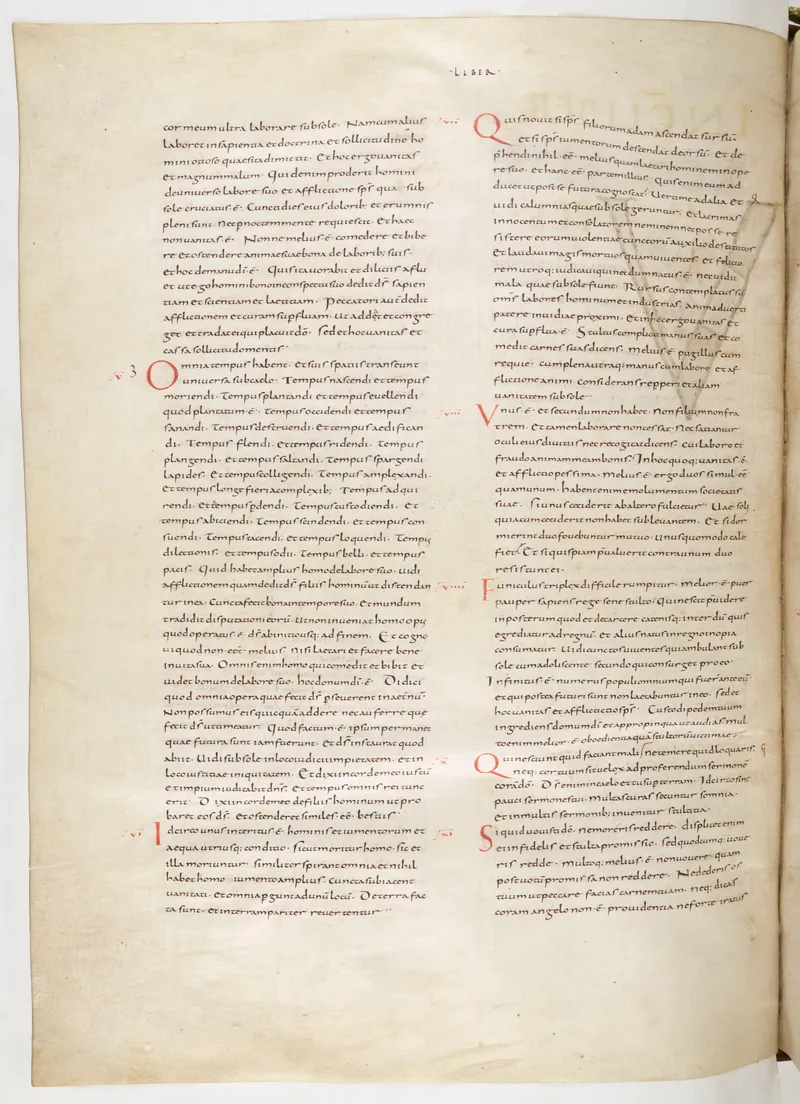 · LIBER ·
cor meum ultra laborare sub sole. Nam cum alius
laboret in sapientia et doctrina et sollicitudine ho
mini otioso quaesita dimittat. Et hoc ergo uanitas
et magnum malum. Quid enim proderit homini
de uniuerso labore suo et afflictione sps qua sub
sole cruciatus ē. Cuncti dies eius dolorib; et erumnis
pleni sunt. Nec p noctem mente requiescit. Et haec
non uanitas ē. Nonne melius ē comedere et bibe
re et ostendere animae suae bona de laborib; suis.
et hoc de manu dī ē. Quis ita uorabit et diliciis afflu
et ut ego homini bono in conspectu suo dedit ds sapien
tiam et scientiam et laetitiam. Peccatori aut dedit
afflictionem et curam supfluam. ut addat et congre
get et tradat ei qui placuit dō. sed et hoc uanitas et
cassa sollicitudo mentis.
v 3 Omnia tempus habent. et suis spatiis transeunt
uniuersa sub caelo. Tempus nascendi et tempus
moriendi. Tempus plantandi et tempus euellendi
quod plantatum ē. Tempus occidendi et tempus
sanandi. Tempus destruendi. et tempus aedifican
di. Tempus flendi. et tempus ridendi. Tempus
plangendi. et tempus saltandi. Tempus spargendi
lapides. et tempus colligendi. Tempus amplexandi.
et tempus longe fieri a complexib; Tempus adqui
rendi. et tempus pdendi. Tempus custodiendi. et
tempus abiciendi. Tempus scindendi. et tempus con
suendi. Tempus tacendi. et tempus loquendi. Tempus
dilectionis. et tempus odii. Tempus belli. et tempus
pacis. Quid habet amplius homo de labore suo. Uidi
afflictionem quam dedit ds filiis hominū ut distendan
tur in ea. Cuncta fecit bona in tempore suo. et mundum
tradidit disputationi eorū. Ut non inueniat homo opus
quod operatus ē ds ab initio usq; ad finem. Et cogno
ui quod non eēt melius. nisi laetari et facere bene
in uita sua. Omnis enim homo qui comedit et bibit et
uidet bonum de labore suo. hoc donum dī ē. Didici
quod omnia opera quae fecit ds pseuerent in aetnū.
Non possumus eis quicquā addere nec auferre que
fecit ds ut timeatur. Quod factum ē. ipsum permanet
quae futura sunt iam fuerunt. et ds instaurat quod
abiit. Uidi sub sole in loco iudicii impietatem. et in
loco iustitiae iniquitatem. Et dixi in corde meo iustū
et impium iudicabit dns. et tempus omnis rei tunc
erit. Dixi in corde meo de filiis hominum ut pro
baret eos ds. et ostenderet similes eē bestiis.
vi Idcirco unus interitus ē hominis et iumentorum et
aequa utriusq; condicio. sicut moritur homo. sic et
illa moriuntur. similiter spirant omnia et nihil
habet homo iumento amplius. Cuncta subiacent
uanitati. et omnia pgunt ad unū locū. De terra fac
ta sunt. et in terram pariter reuertentur.
Quis nouit si sps filiorum adam ascendat sursū.
et si sps iumentorum descendat deorsū. et de
phendi nihil eē melius quam laetari hominem in ope
re suo. et hanc eē partem illius. Quis enim eum ad
ducet ut post se futura cognoscat. Uerti me ad alia et
uidi calumnias quae sub sole geruntur. et lacrimas
innocentum et consolatorem neminem nec posse re
sistere eorum uiolentiae cunctorū auxilio destitutos
et laudaui magis mortuos quam uiuentes. et felicio
rem utroq; iudicaui qui necdum natus ē. nec uidit
mala quae sub sole fiunt. Rursus contemplatus sū
omīs labores hominum et industrias. animaduerti
patere inuidiae proximi. et in hoc ergo uanitas et
cura supflua ē. Stultus complicat manus suas et co
medit carnes suas dicens. Melius ē pugillus cum
requie. cum plena utraq; manus cum labore et af
flictione animi. Considerans repperi et aliam
uanitatem sub sole.
Unus ē. et secundum non habet. Non filium non fra
trem. et tamen laborare non cessat. Nec satiantur
oculi eius diuitiis nec recogitat dicens. Cui laboro et
fraudo animam meam bonis. In hoc quoq; uanitas ē.
et afflictio pessima. Melius ē ergo duos simul eē
quam unum. habent enim emolumentum societatis
suae. Si unus ceciderit ab altero fulcietur. Uae soli
quia cum ceciderit non habet subleuantem. Et si dor
mierint duo fouebuntur mutuo. Unus quomodo cale
fiet. Et si quispiam pualuerit contra unum duo
resistunt ei.
Funiculus triplex difficile rumpitur. Melior ē puer
pauper sapiens rege sene stulto. Qui nescit puidere
in posterum quod et de carcere catenisq; interdū quis
egrediatur ad regnū. et alius natus in regno inopia
consumatur. Uidi cunctos uiuentes qui ambulant sub
sole cum adoliscente secundo qui consurget pro eo.
Infinitus ē numerus populi omnium qui fuer ante eū
et qui postea futuri sunt non laetabuntur in eo. sed et
hoc uanitas et afflictio sps. Custodi pedem tuum
ingrediens domum dī et appropinqua ut audias. Mul
to enim melior ē obedientia quā stultorū uictimae.
Qui nesciunt quid faciant mali. ne temere quid loquaris.
neq; cor tuum sit uelox ad proferendum sermonē
corā dō. Ds enim in caelo et tu sup terram. Idcirco sint
pauci sermones tui. Multas curas secuntur somnia.
et in multis sermonib; inuenitur stultitia.
xi Si quid uouisti dō. ne moreris reddere. displicet enim
ei infidelis et stulta promissio. sed quodcumq; uoue
ris redde. Multoq; melius ē non uouere. quam
post uotū promissa non reddere. Ne dederis os
tuum ut peccare facias carnem tuam. neq; dicas
coram angelo non ē prouidentia ne forte iratus